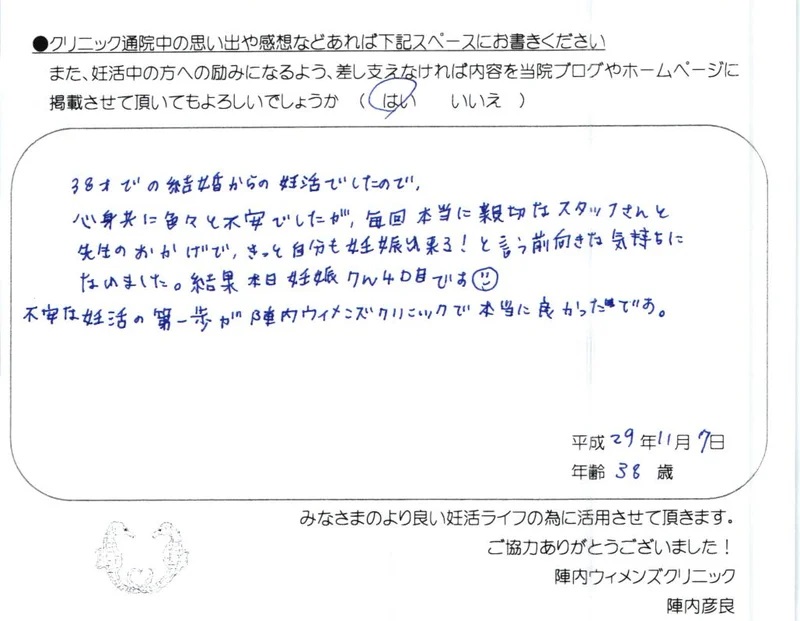 ●クリニック通院中の思い出や感想などあれば下記スペースにお書きください
また、妊活中の方への励みになるよう、差し支えなければ内容を当院ブログやホームページに
掲載させて頂いてもよろしいでしょうか （ はい いいえ ）
38才での結婚からの妊活でしたので、
心身共に色々と不安でしたが、毎回本当に親切なスタッフさんと
先生のおかげで、きっと自分も妊娠出来る！と言う前向きな気持ちに
なれました。結果本日妊娠7w4日目です
不安な妊活の第一歩が陣内ウィメンズクリニックで本当に良かったです。
平成29年11月7日
年齢 38 歳
みなさまのより良い妊活ライフの為に活用させて頂きます。
ご協力ありがとうございました！
陣内ウィメンズクリニック
陣内彦良